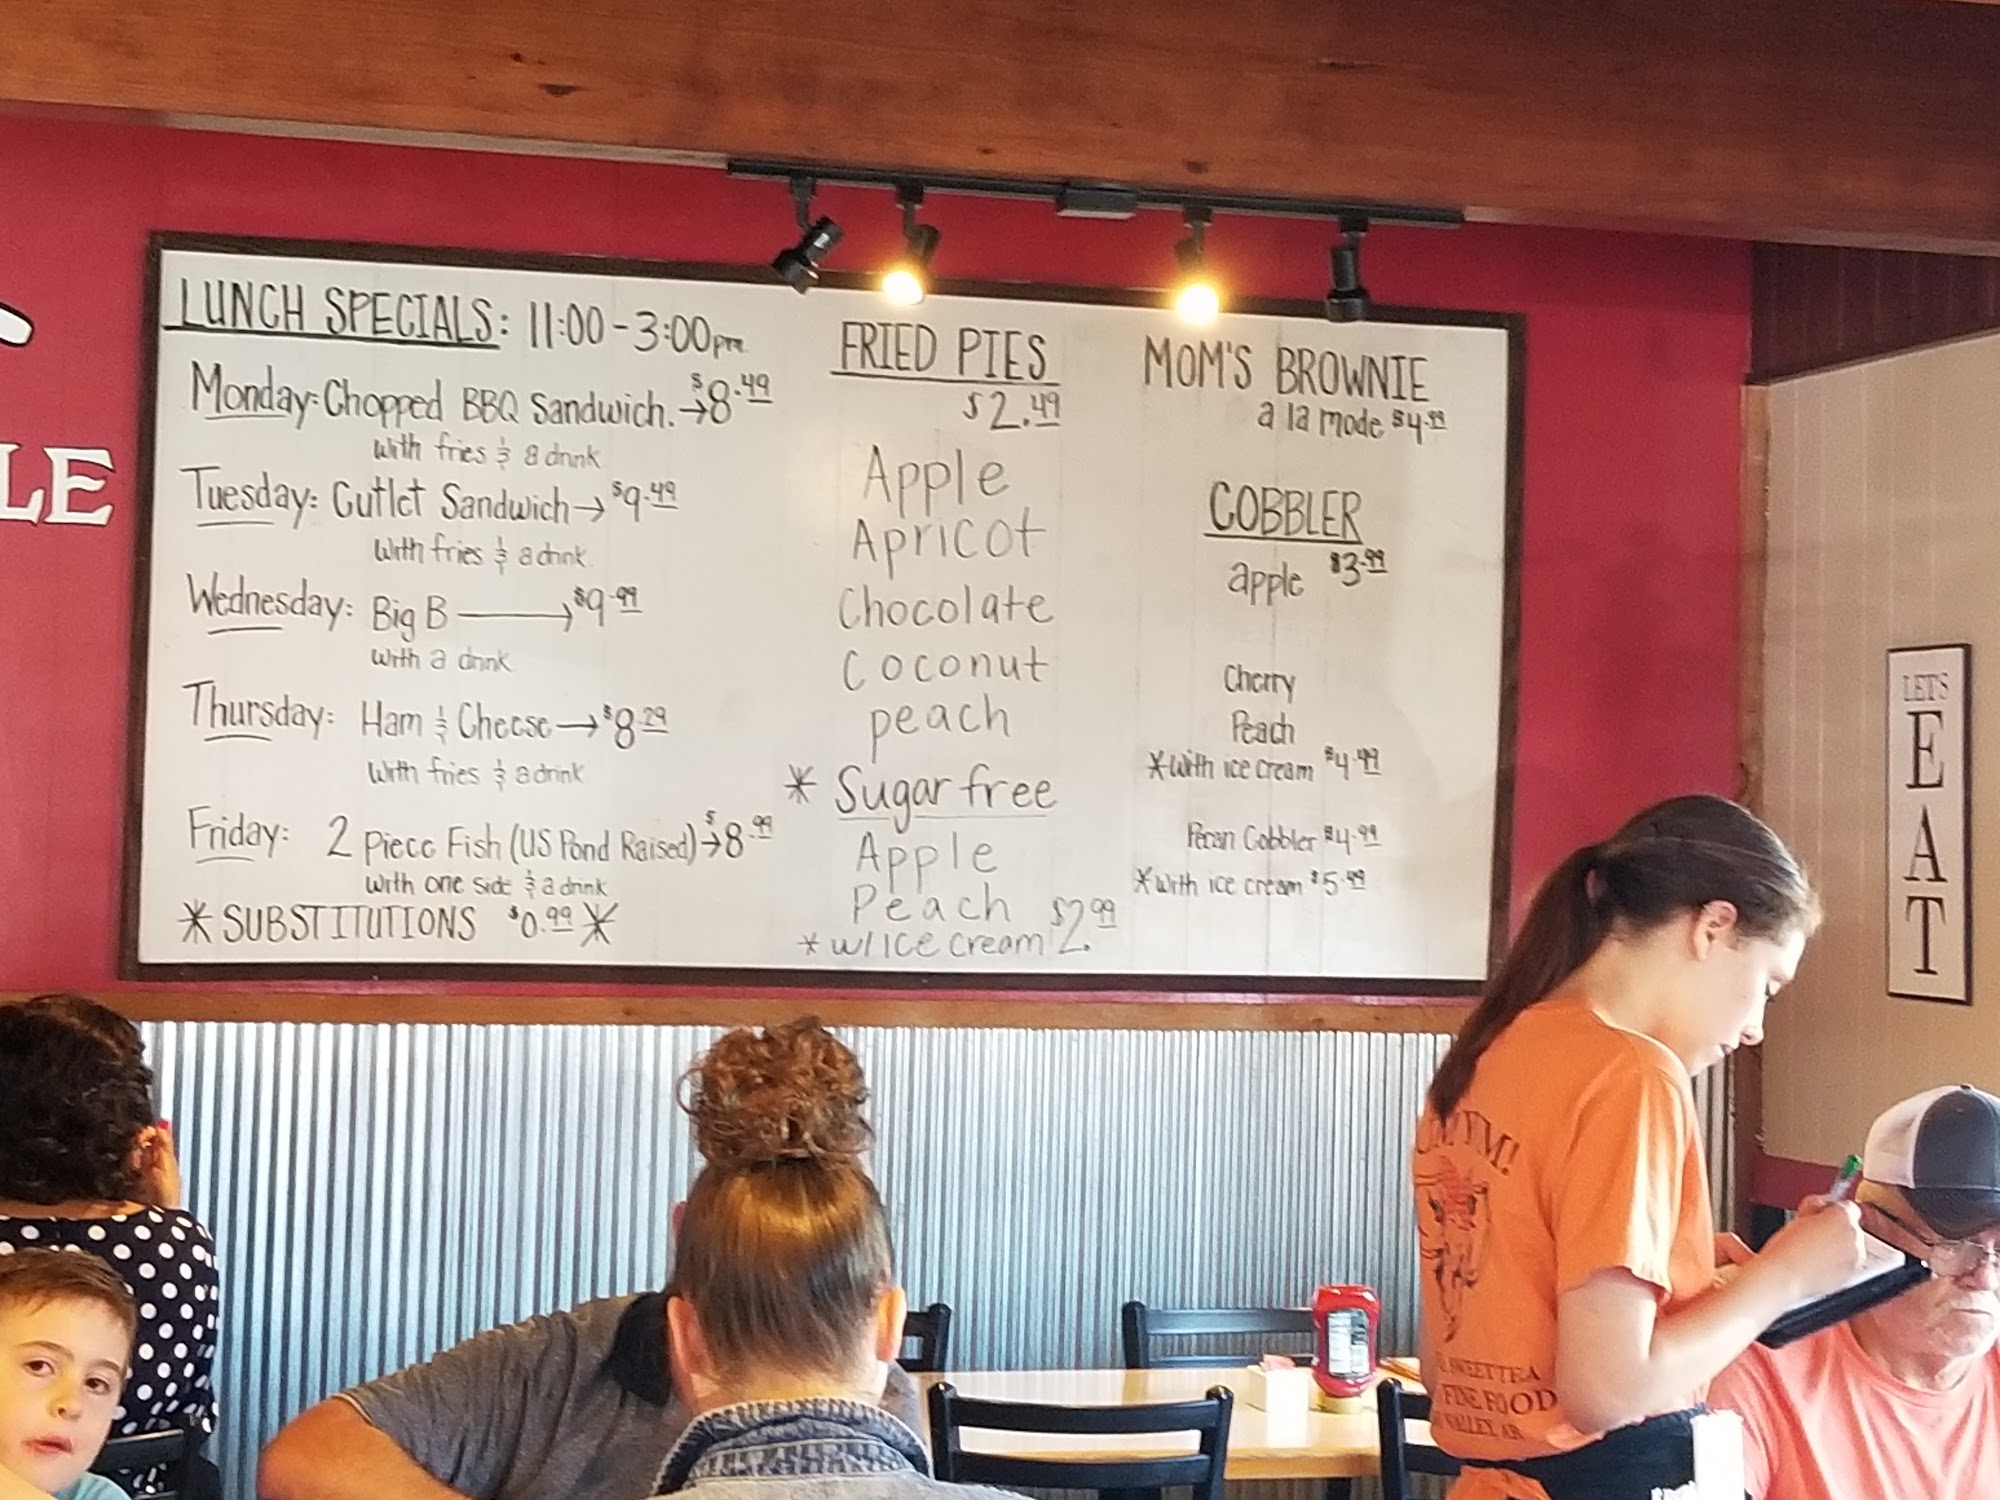 LE
LUNCH SPECIALS: 11:00 - 3:00pm
Monday: Chopped BBQ Sandwich. → $8.49
with fries & a drink
Tuesday: Cutlet Sandwich → $9.49
with fries & a drink
Wednesday: Big B → $9.99
with a drink
Thursday: Ham & Cheese → $8.29
with fries & a drink
Friday: 2 Piece Fish (US Pond Raised) → $8.99
with one side & a drink
* SUBSTITUTIONS $0.99 *
FRIED PIES
$2.49
Apple
Apricot
Chocolate
Coconut
peach
* Sugar free
Apple
Peach
* w/ Ice cream $2.99
MOM'S BROWNIE
a la mode $4.99
COBBLER
apple $3.99
Cherry
Peach
* with ice cream $4.49
Pecan Cobbler $4.99
* with ice cream $5.49
LETS
EAT
YM!
SWEET TEA
FINE FOOD
VALLEY, AR